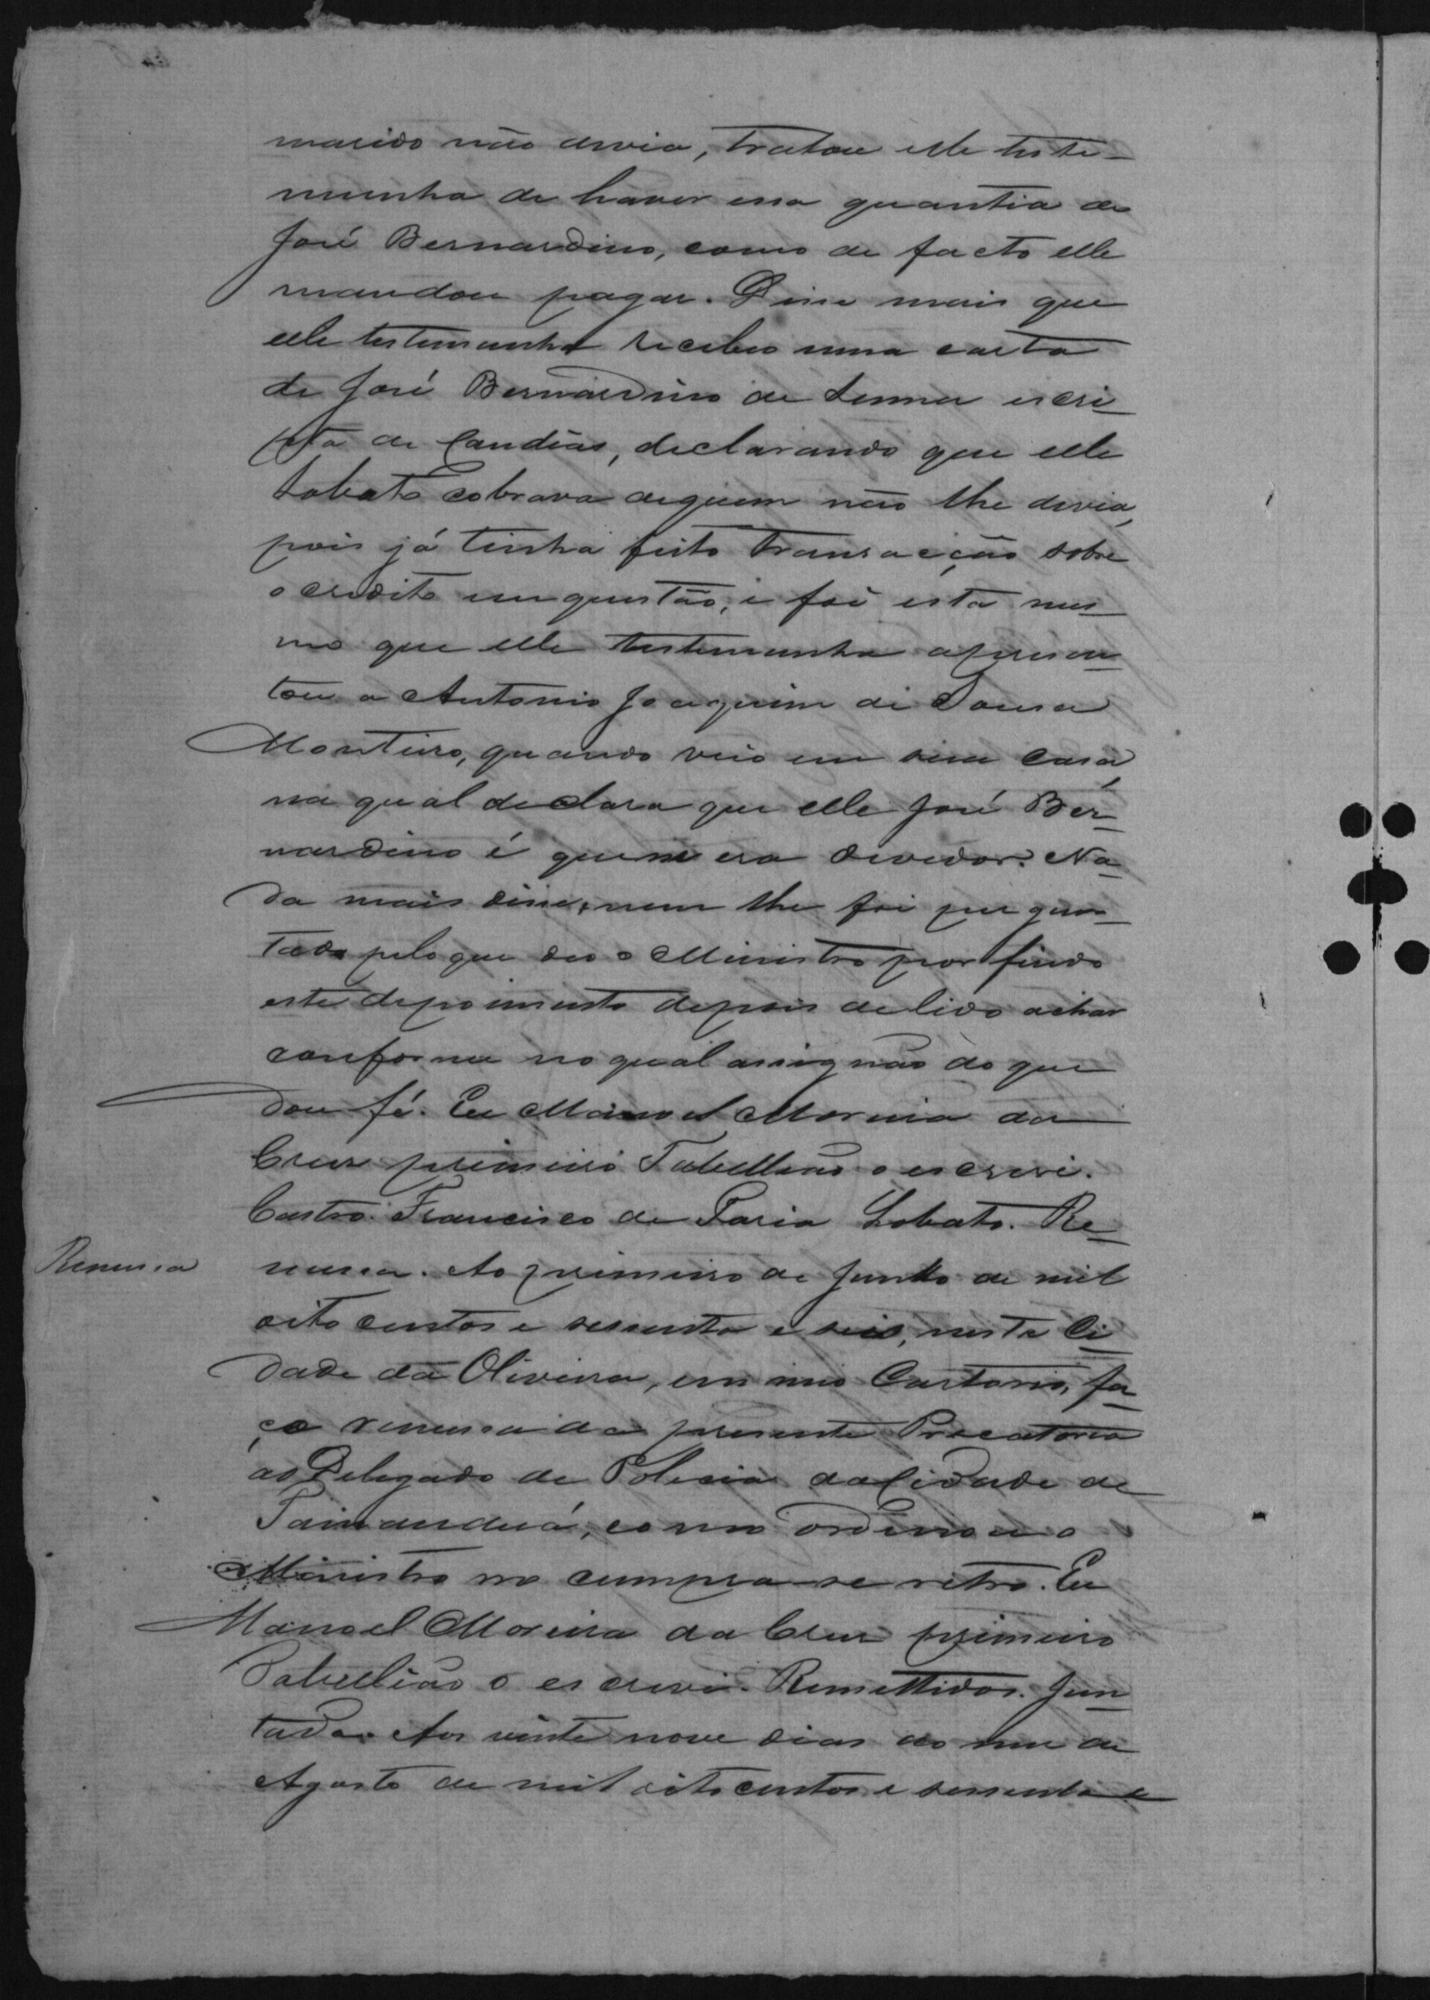 marido não devia, tratou elle teste-
munha de haver essa quantia de
José Bernardino, como de facto elle
mandou pagar. Disse mais que
elle testemunha recebeo uma carta
de José Bernardino de Senna escri-
pta de Candeas, declarando que elle
Lobato cobrava de quem não lhe devia,
pois já tinha feito transacção sobre
o credito em questão, e foi esta mes-
mo que elle testemunha apresen-
tou a Antonio Joaquim de Sousa
Monteiro, quando veio em sua casa,
na qual declara que elle José Ber-
nardino é quem era devedor. Na-
da mais disse, nem lhe foi pergun-
tado pelo que deo o Ministro por findo
este depoimento depois de lido achar
conforme no qual assignão do que
dou fé. Eu Manoel Moreira da
Cruz primeiro Tabellião o escrevi.
Castro. Francisco de Faria Lobato. Re-
Remessa
messa. Ao primeiro de Junho de mil
oito centos e sessenta e seis, nesta Ci-
dade da Oliveira, em meo Cartorio, fa-
ço remessa da presente Precatoria
ao Delegado de Policia da Cidade de
Tamanduá, como ordenou o
Ministro no cumpra-se retro. Eu
Manoel Moreira da Cruz primeiro
Tabellião o escrevi. Remettidos. Jun-
tada. Aos vinte nove dias do mez de
Agosto de mil oito centos e sessenta e